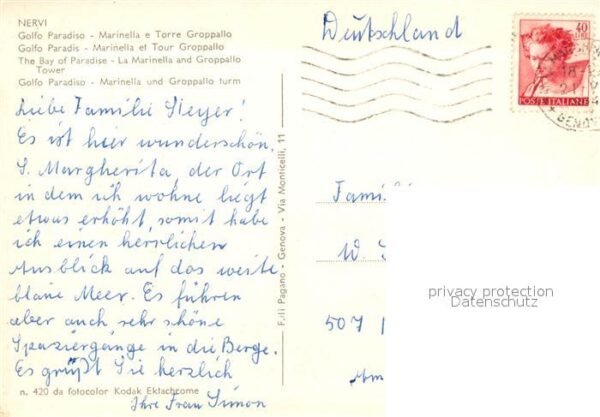 NERVI
Golfo Paradiso - Marinella e Torre Groppallo
Golfo Paradis - Marinella et Tour Groppallo
The Bay of Paradise - La Marinella and Groppallo
Tower
Golfo Paradiso - Marinella und Groppallo turm
Liebe Familie Steyer!
Es ist hier wunderschön.
S. Margherita, der Ort
in dem ich wohne liegt
etwas erhöht, somit habe
ich einen herrlichen
Ausblick auf das weite
blaue Meer. Es führen
aber auch sehr schöne
Spaziergänge in die Berge.
Es grüßt Sie herzlich
Ihre Frau Simon
n. 420 da fotocolor Kodak Ektachrome
F.lli Pagano - Genova - Via Monticelli, 11
Deutschland
40
POSTE ITALIANE
GENOV
Famili
W.
507
Am
privacy protection
Datenschutz